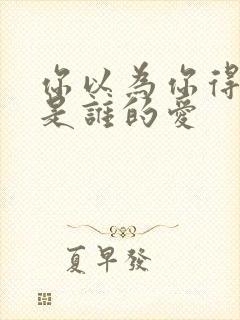 你以為你得
是誰的愛
夏早發